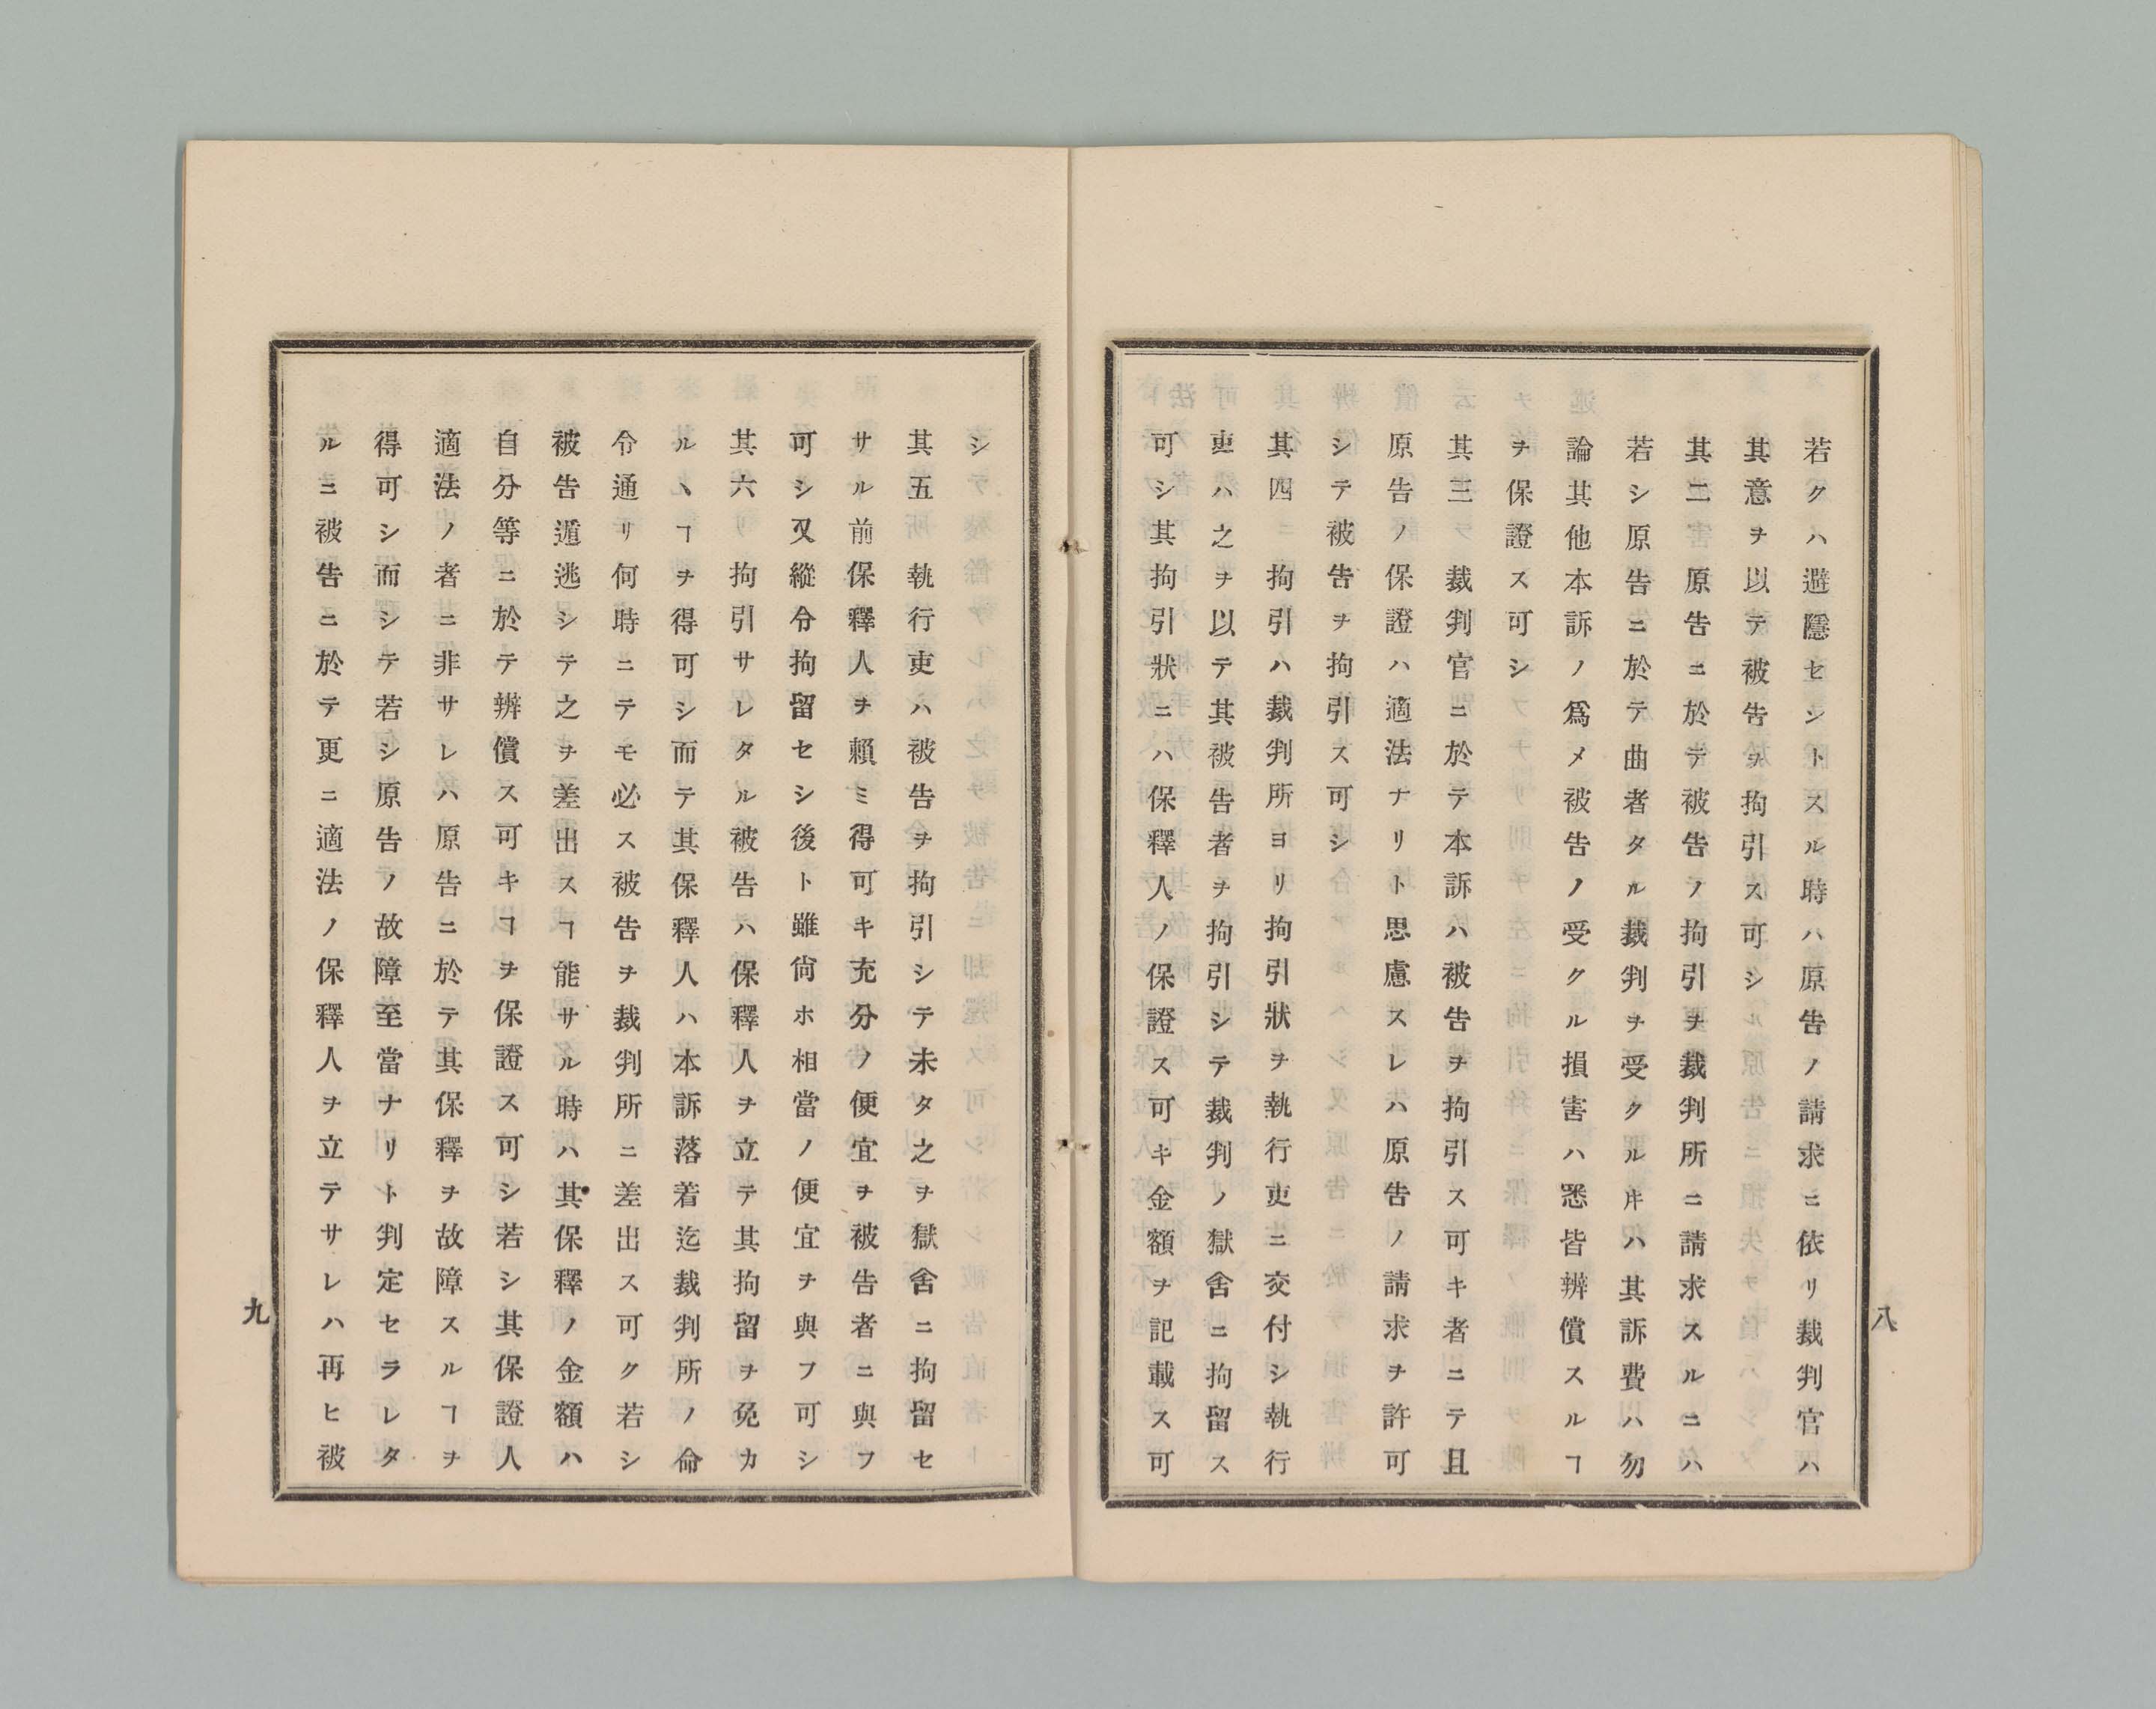 若クハ避隱セシトスル時ハ原告ノ請求ニ依リ裁判官ハ
其意ヲ以テ被告ヲ拘引ス可シ
其二 原告ニ於テ被告ノ拘引ヲ裁判所ニ請求スルニハ
若シ原告ニ於テ曲者タル裁判ヲ受クルヰハ其訴費ハ勿
論其他本訴ノ爲メ被告ノ受クル損害ハ悉皆辨償スルヿ
ヲ保證ス可シ
其三 裁判官ニ於テ本訴ハ被告ヲ拘引ス可キ者ニテ且
原告ノ保證ハ適法ナリト思慮スレハ原告ノ請求ヲ許可
シテ被告ヲ拘引ス可シ
其四 拘引ハ裁判所ヨリ拘引狀ヲ執行吏ニ交付シ執行
吏ハ之ヲ以テ其被告者ヲ拘引シテ裁判ノ獄舍ニ拘留ス
可シ其拘引狀ニハ保釋人ノ保證ス可キ金額ヲ記載ス可
八
シ
其五 執行吏ハ被告ヲ拘引シテ未タ之ヲ獄舍ニ拘留セ
サル前保釋人ヲ賴ミ得可キ充分ノ便宜ヲ被告者ニ與フ
可シ又縱令拘留セシ後ト雖尙ホ相當ノ便宜ヲ與フ可シ
其六 拘引サレタル被告ハ保釋人ヲ立テ其拘留ヲ免カ
ルヽヿヲ得可シ而テ其保釋人ハ本訴落着迄裁判所ノ命
令通リ何時ニテモ必ス被告ヲ裁判所ニ差出ス可ク若シ
被告遁逃シテ之ヲ差出スヿ能サル時ハ其保釋ノ金額ハ
自分等ニ於テ辨償ス可キヿヲ保證ス可シ若シ其保證人
適法ノ者ニ非サレハ原告ニ於テ其保釋ヲ故障スルヿヲ
得可シ而シテ若シ原告ノ故障至當ナリト判定セラレタ
ルニ被告ニ於テ更ニ適法ノ保釋人ヲ立テサレハ再ヒ被
九